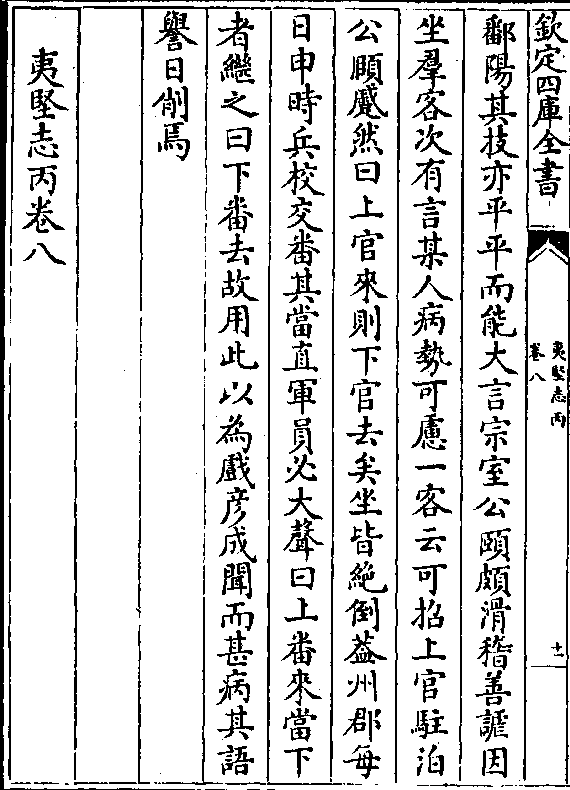 欽定四庫全書
夷堅志丙
卷八
十一
鄱陽其技亦平平而能大言宗室公頤頗滑稽善謔因
坐羣客次有言某人病勢可慮一客云可招上官駐泊
公頤蹙然曰上官來則下官去矣坐皆絶倒葢州郡每
日申時兵校交番其當直軍員必大聲曰上番來當下
者繼之曰下番去故用此以為戲彦成聞而甚病其語
譽日削焉
夷堅志丙卷八